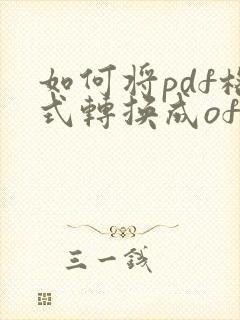 如何将pdf格
式轉换成of
三一钱